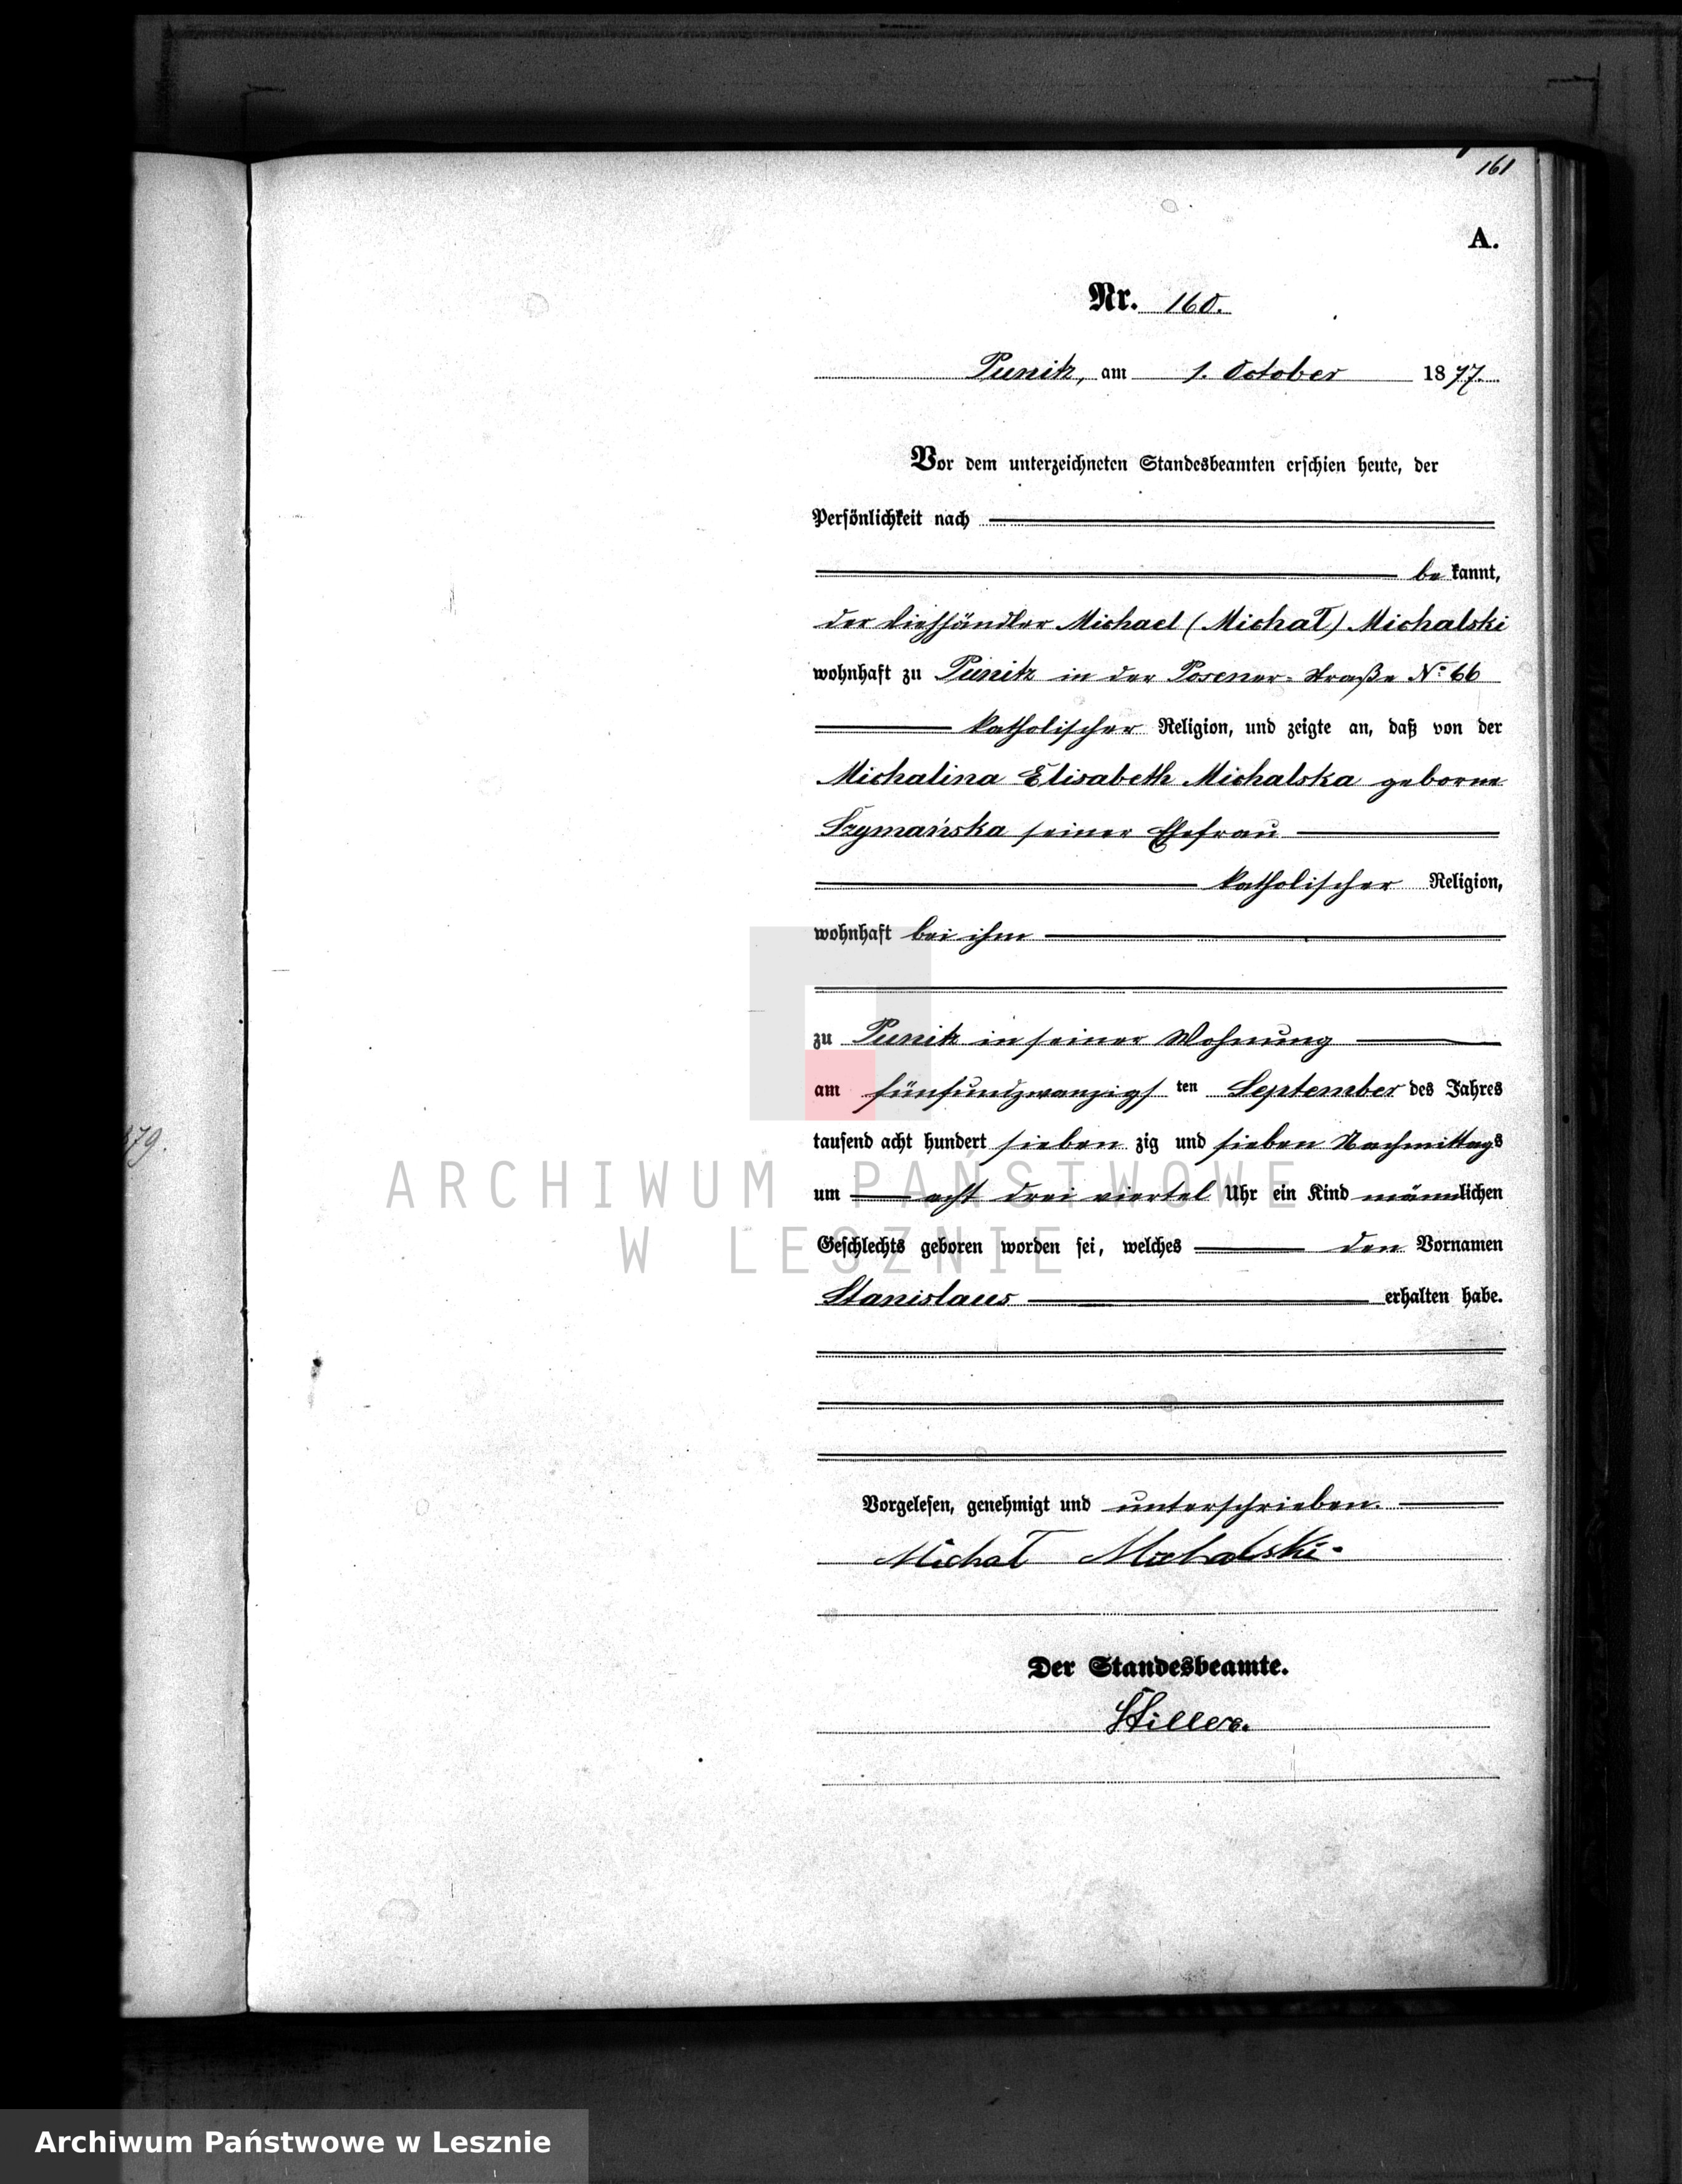 161
A.
Nr. 160.
Punitz, am 1. October 1877.
Vor dem unterzeichneten Standesbeamten erschien heute, der
Persönlichkeit nach
bekannt,
der Viehhändler Michael (Michał) Michalski
wohnhaft zu Punitz in der Posener-Straße No 66
katholischer Religion, und zeigte an, daß von der
Michalina Elisabeth Michalska geborne
Szymańska seiner Ehefrau
katholischer Religion,
wohnhaft bei ihm
zu Punitz in seiner Wohnung
am fünfundzwanzigsten September des Jahres
tausend acht hundert siebenzig und sieben Nachmittags
879.
um acht drei viertel Uhr ein Kind männlichen
ARCHIWUM PAŃSTWOWE
W LESZNIE
Geschlechts geboren worden sei, welches den Vornamen
Stanislaus erhalten habe.
Vorgelesen, genehmigt und unterschrieben.
Michał Michalski
Der Standesbeamte.
Stiller.
Archiwum Państwowe w Lesznie